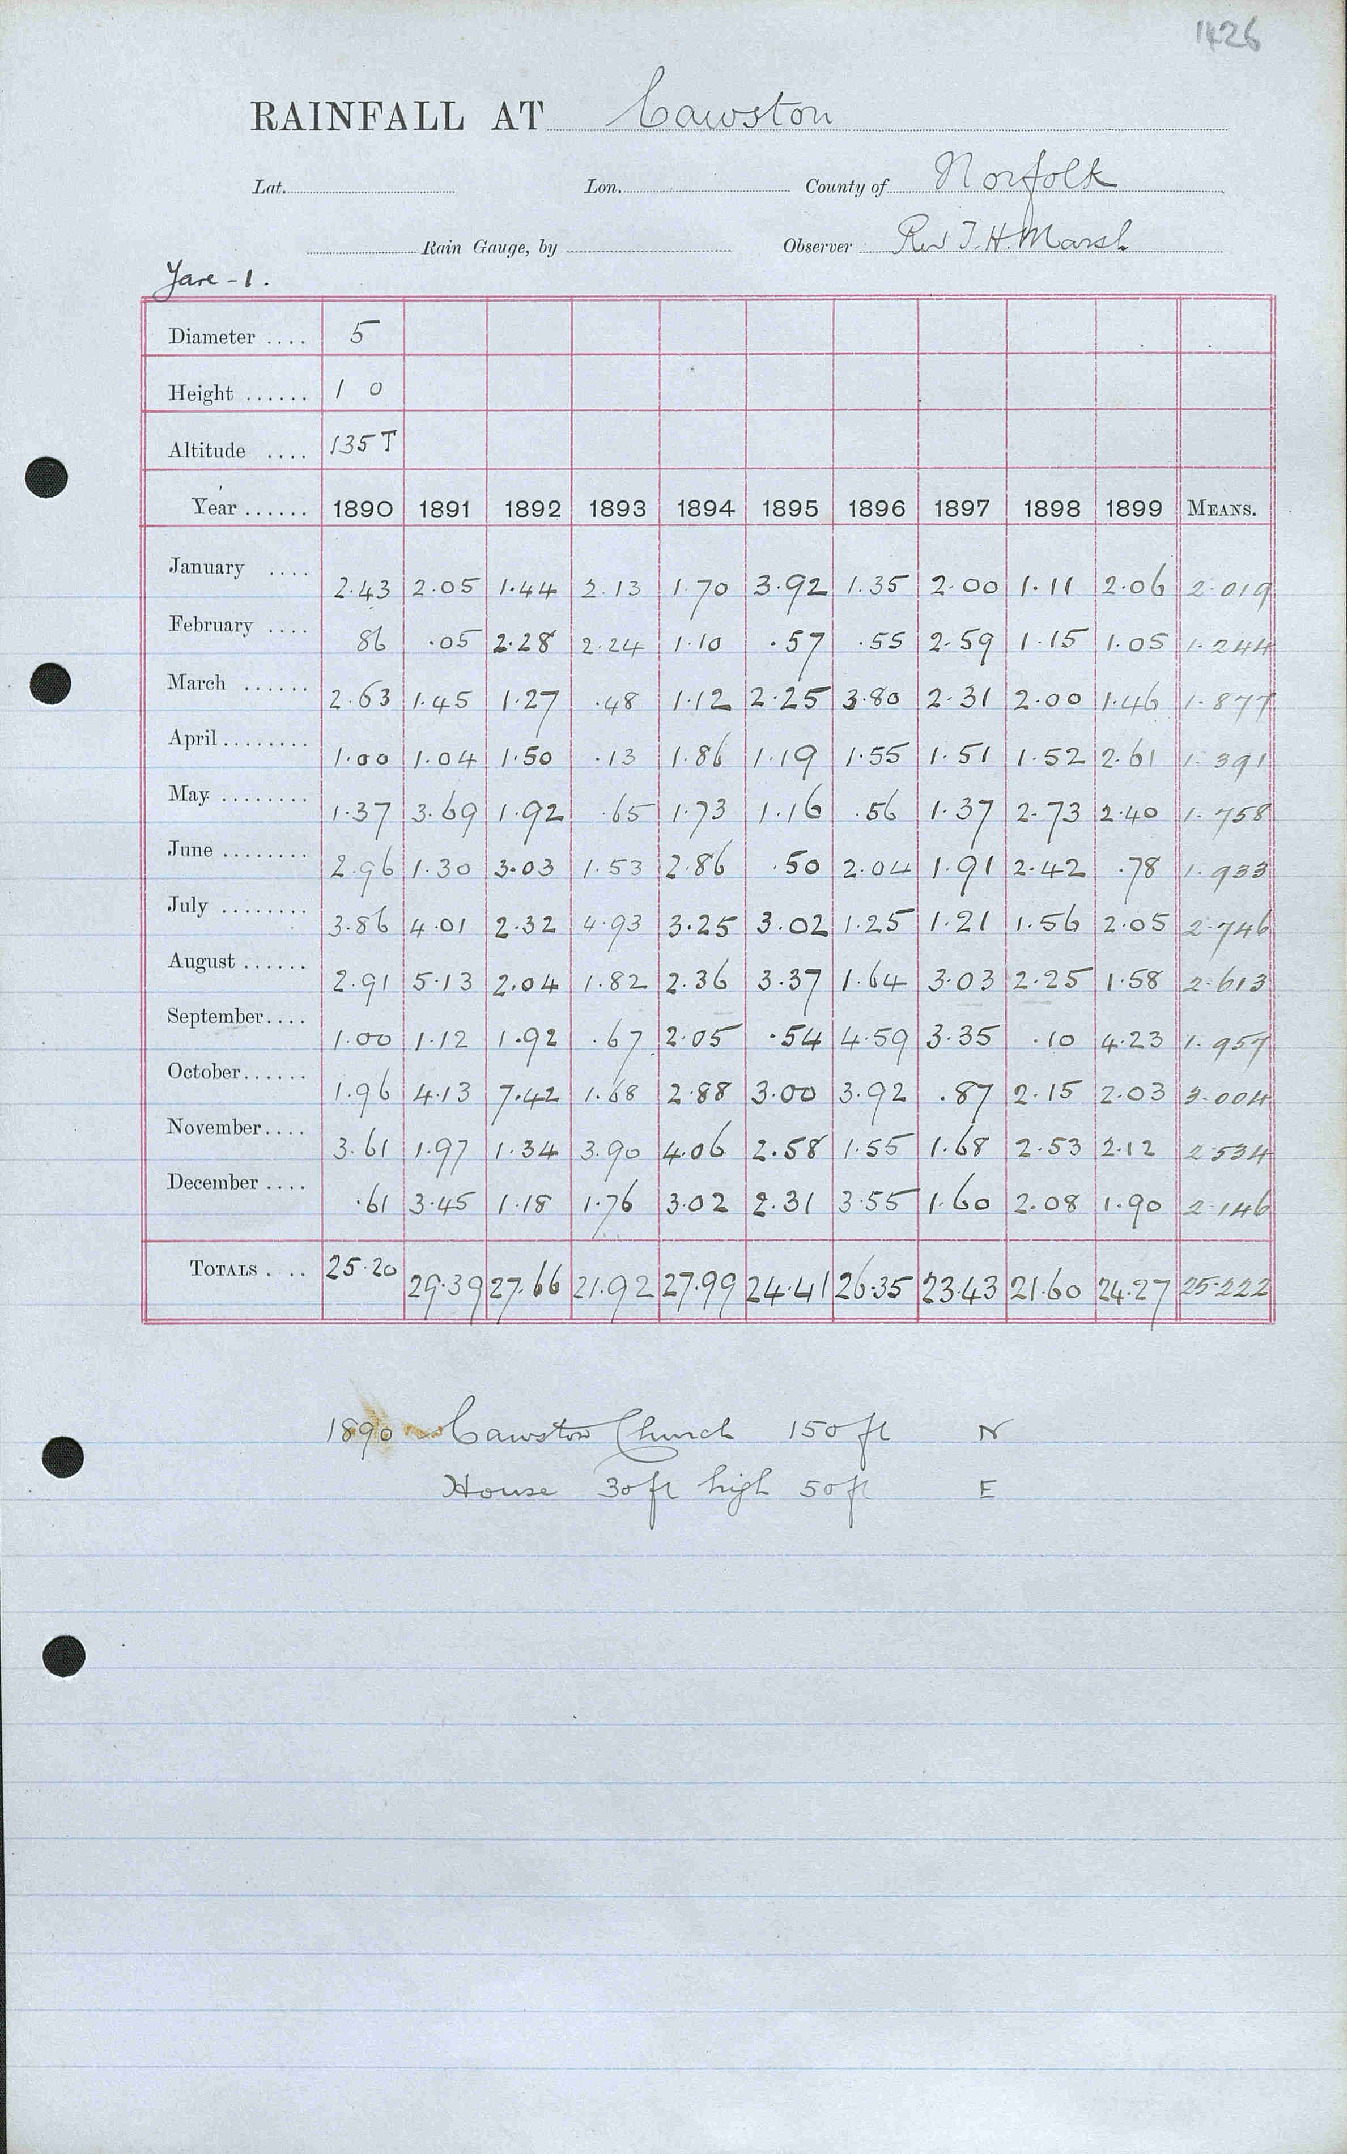 1426
RAINFALL AT Cawston
Lat. Lon. County of Norfolk
Rain Gauge, by Observer Rev T. H. Marsh
Yare - 1.
Diameter .... 5
Height ...... 1 0
Altitude .... 135 T
Year ...... 1890 1891 1892 1893 1894 1895 1896 1897 1898 1899 MEANS.
January .... 2.43 2.05 1.44 2.13 1.70 3.92 1.35 2.00 1.11 2.06 2.019
February .... 86 .05 2.28 2.24 1.10 .57 .55 2.59 1.15 1.05 1.244
March ...... 2.63 1.45 1.27 .48 1.12 2.25 3.80 2.31 2.00 1.46 1.877
April ........ 1.00 1.04 1.50 .13 1.86 1.19 1.55 1.51 1.52 2.61 1.391
May ........ 1.37 3.69 1.92 .65 1.73 1.16 .56 1.37 2.73 2.40 1.758
June ........ 2.96 1.30 3.03 1.53 2.86 .50 2.04 1.91 2.42 .78 1.933
July ........ 3.86 4.01 2.32 4.93 3.25 3.02 1.25 1.21 1.56 2.05 2.746
August ...... 2.91 5.13 2.04 1.82 2.36 3.37 1.64 3.03 2.25 1.58 2.613
September.... 1.00 1.12 1.92 .67 2.05 .54 4.59 3.35 .10 4.23 1.957
October...... 1.96 4.13 7.42 1.68 2.88 3.00 3.92 .87 2.15 2.03 3.004
November.... 3.61 1.97 1.34 3.90 4.06 2.58 1.55 1.68 2.53 2.12 2.534
December .... .61 3.45 1.18 1.76 3.02 2.31 3.55 1.60 2.08 1.90 2.146
TOTALS .... 25.20 29.39 27.66 21.92 27.99 24.41 26.35 23.43 21.60 24.27 25.222
1890 Cawston Church 150 ft N
House 30 ft high 50 ft E